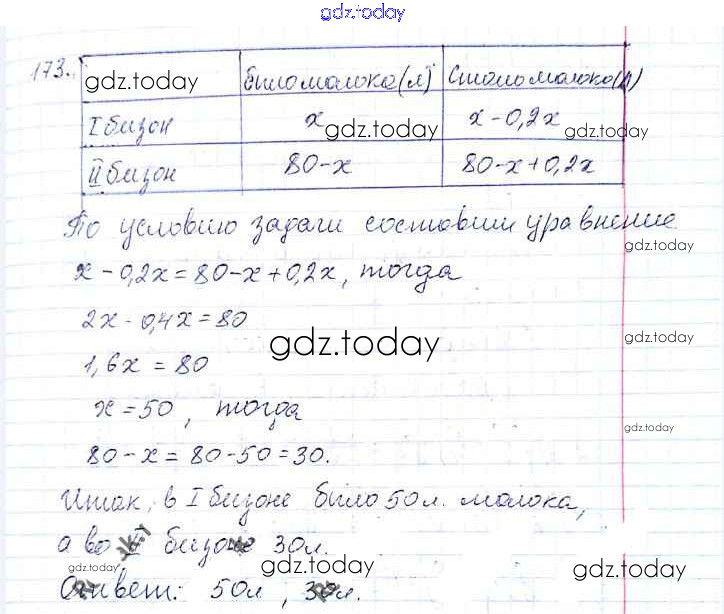 gdz.today
173. gdz.today было молока (л) Стало молока (л)
I бизон x gdz.today x - 0,2x gdz.today
II бизон 80-x 80-x+0,2x
По условию задачи составим уравнение
gdz.today
x - 0,2x = 80-x+0,2x, тогда
2x - 0,4x = 80
gdz.today
gdz.today
1,6x = 80
x = 50, тогда
gdz.today
80-x = 80-50=30.
Итак, в I бизоне было 50 л. молока,
а во II бизоне 30 л.
gdz.today gdz.today gdz.today
Ответ: 50л, 30л.